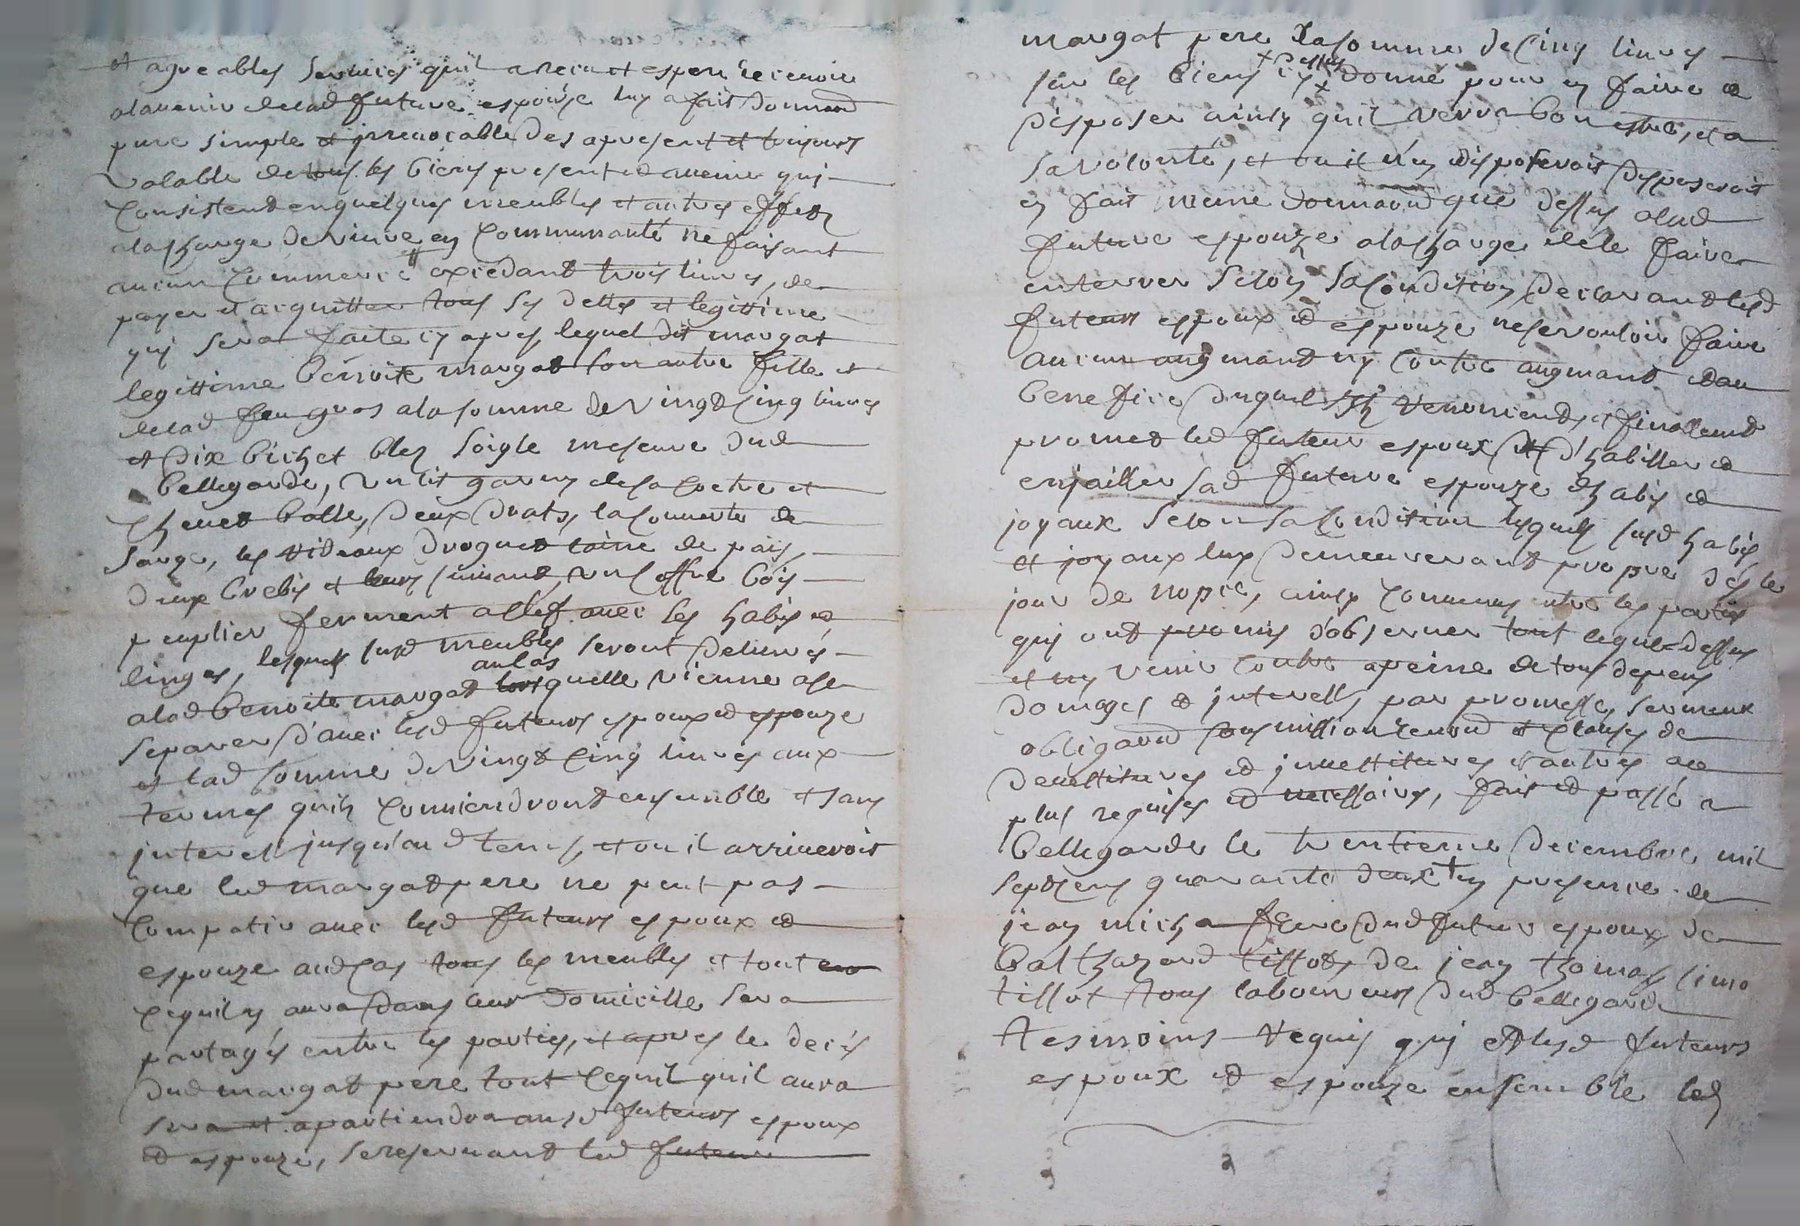 et agreables services quil a receu et espere recevoir
alavenir de lad future espouze luy a fait donnaon
pure simple et irrevocable des apresent et tousjours
valable de tous les biens present et avenir qui
Consistent en quelques meubles et autres effets
alacharge de vivre en Communauté ne faisant
aucun Commerce excedant trois livres, de
payer et acquitter tous ses dettes et legittime
qui sera faite cy apres lequel dit margat
legittime benoite margat son autre fille et
delad feu gros alasomme de vingt cinq livres
et dix bichet bley soigle mesure dud
bellegarde, un lit garny de sa coetre et
Chevet bolle, deux drats, la couverte de
sarge, les rideaux droguet laine de païs,
deux brebis et leurs suivant, un coffre bois
peuplier ferment a clef avec les habis et
linges, lesquels susd meubles seront delivrés
alad benoite margat aucas quelle vienne ase
separer d'avec lesd futeurs espoux et espouze
et lad somme de vingt cinq livres aux
termes quils conviendront ensemble et sans
interet jusqu'aud tems, et ou il arriveroit
que led margat pere ne peut pas
Compatir avec lesd futeurs espoux et
espouze audcas tous les meubles et tout
cequil y aura dans leur domicille sera
partagés entre les parties, et apres le decés
dud margat pere tout cequil quil aura
sera et apartiendra ausd futeurs espoux
et espouze, sereservant led futeur
margat pere la somme de cinq livres
sur les biens cy dessus donné pour en faire et
disposer ainsy quil verra bon estre, et a
sa volonté, et ou il n'en disposeroit disposeroit
en fait meme donnaon que dessus alad
future espouze alacharge de le faire
enterrer selon sa Condition, declarant lesd
futeurs espoux et espouze nesevouloir faire
aucun augmant ny contre augmant etau
benefice duquel ils renoncient, et finallemt
promet led futeur espoux d'habiller et
enjoailler sad future espouze d'habis et
joyaux selon sa Condition lesquels susd habis
et joyaux luy demeureront propre dés le
jour de nopce, ainsy Convenus entre les parties
qui ont promis d'observer tout leque dessus
et ny venir contre apeine de tous depens
domages et interests, par promesse, serment
obligaon soumission renon et clauses de
devettitures et invettitures et autres ace
plus requises et necessaires, fait et passé a
bellegarde le trentieme decembre mil
septcens quarante deux en presence de
jean micha frere dud futur espoux de
balthazard tissot, de jean thomas
tissot tous laboureurs dud bellegarde
tesmoins requis qui et lesd futeurs
espoux et espouze ensemble led